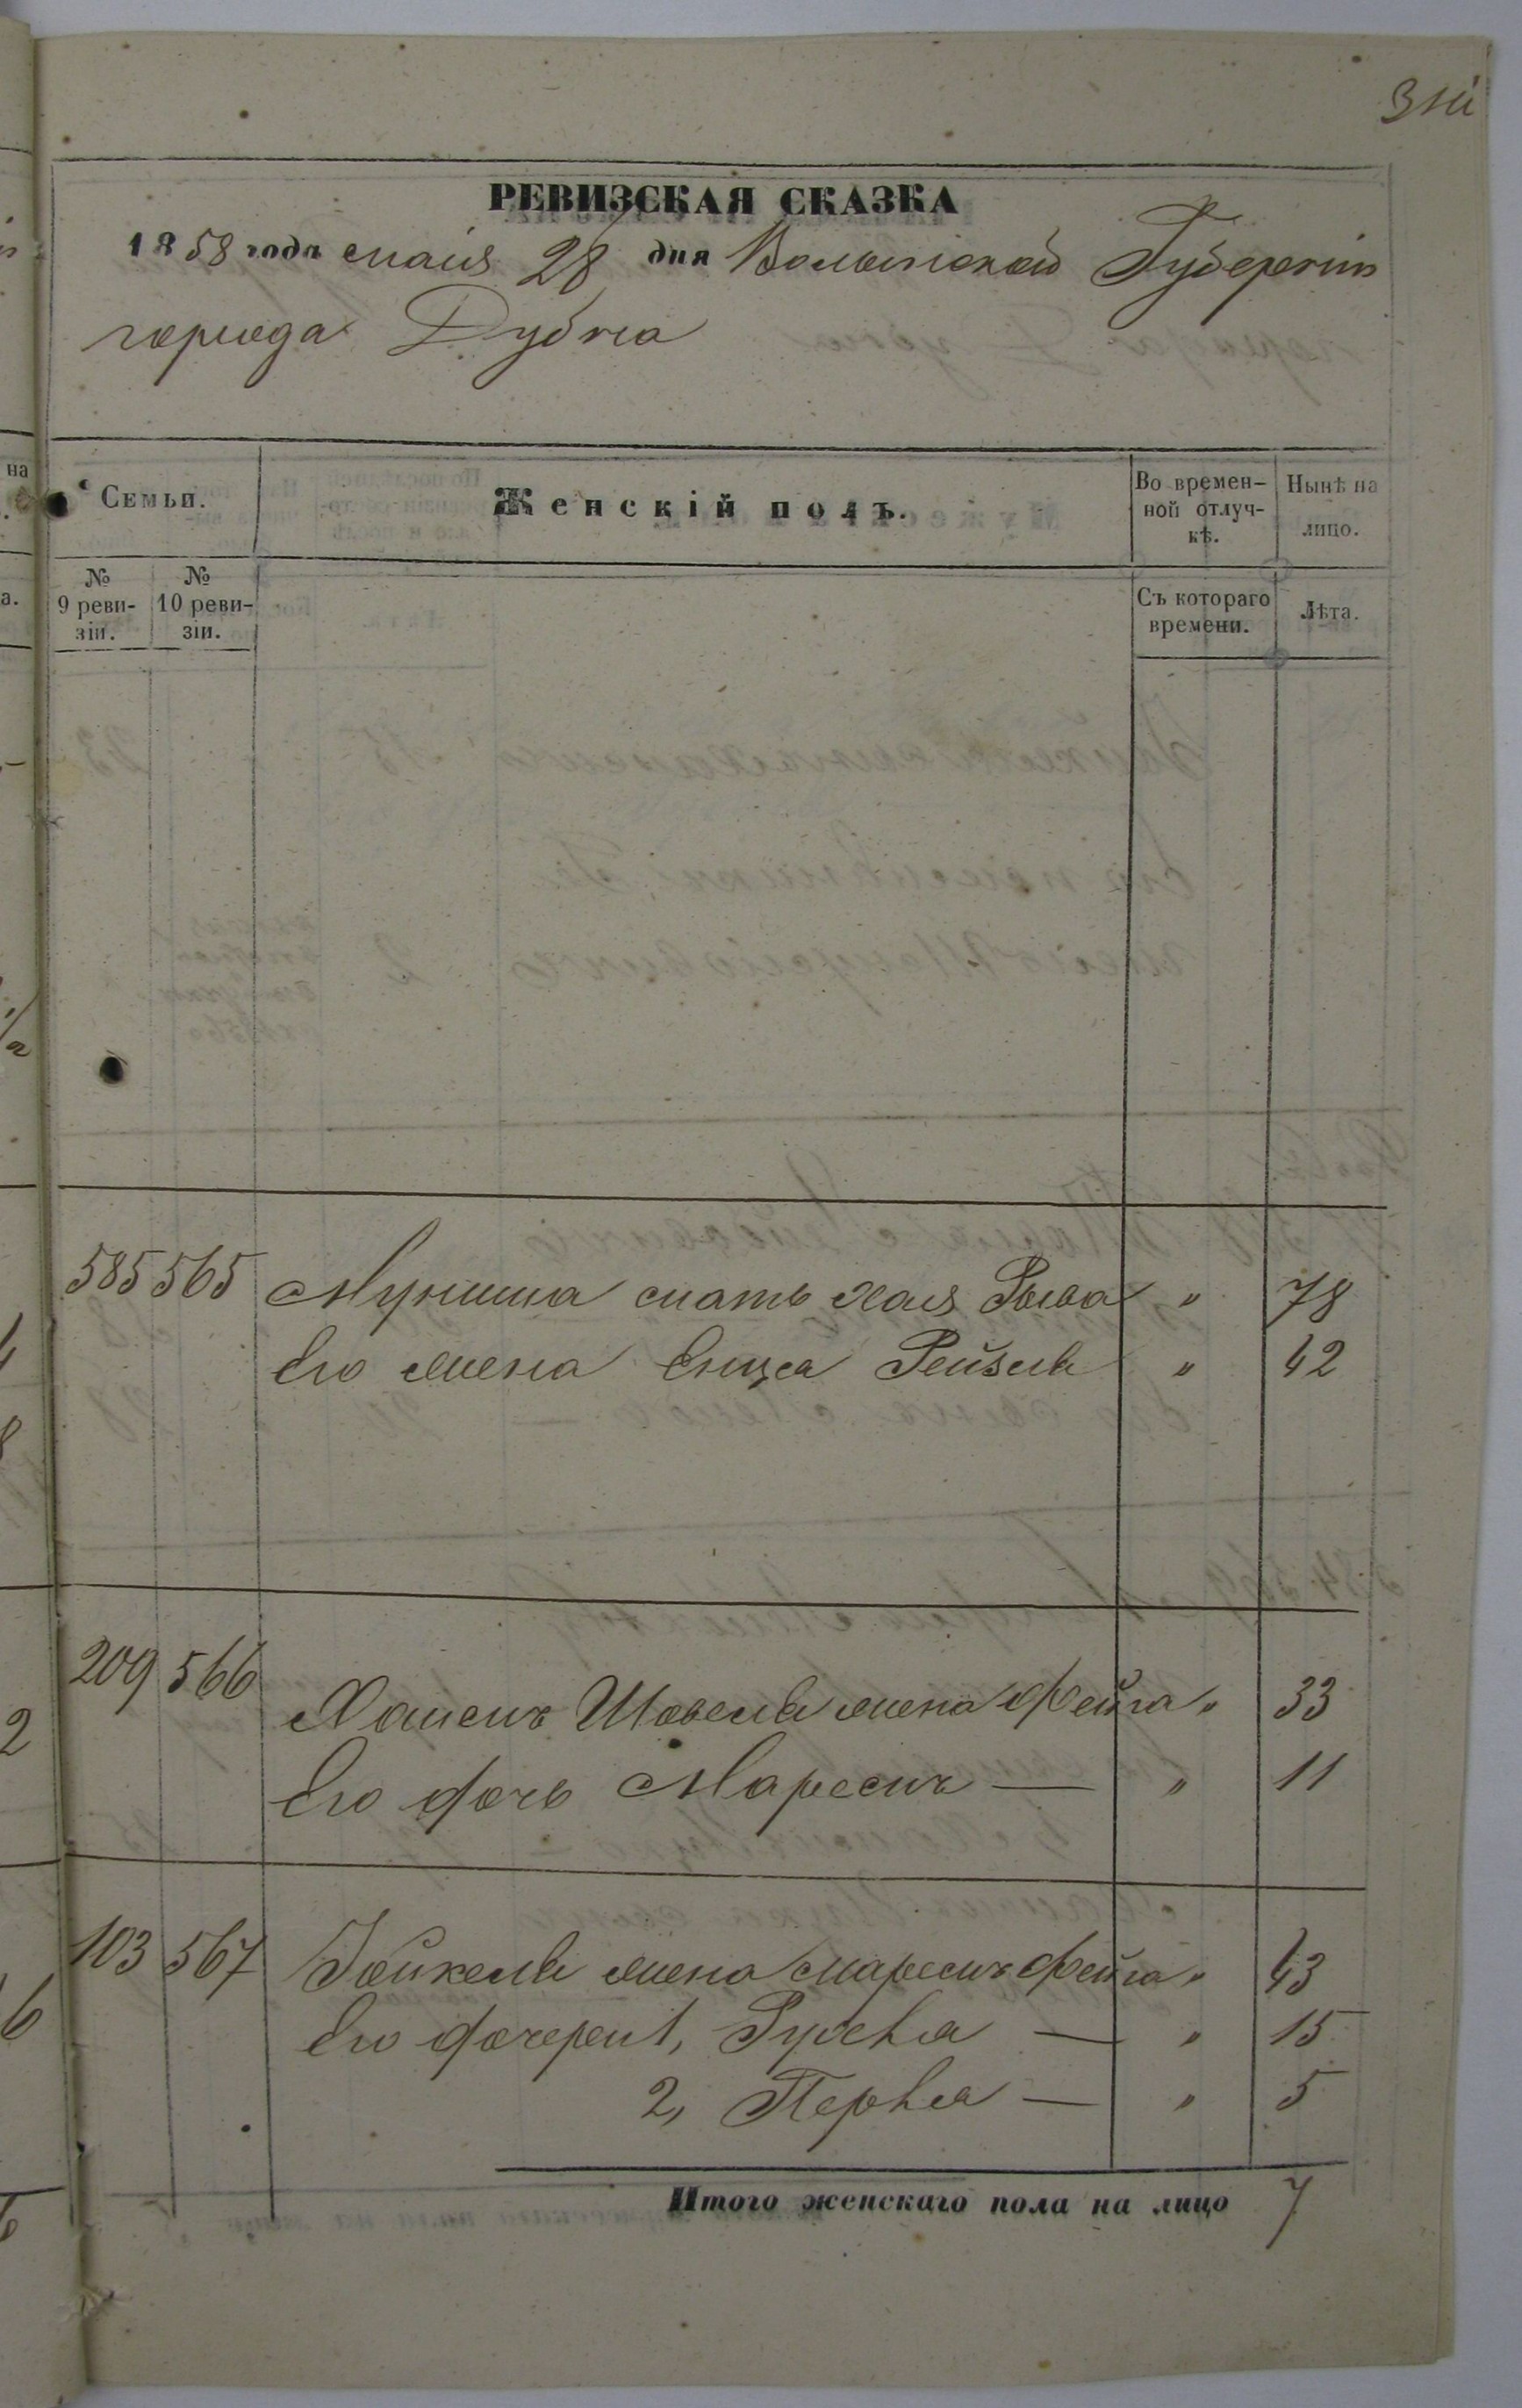 РЕВИЗСКАЯ СКАЗКА
1858 года маія 28 дня Волынской Губерніи
города Дубна
Семьи.
Женскій полъ.
Во времен-
ной отлуч-
кѣ.
Нынѣ на
лицо.
№
9 реви-
зіи.
№
10 реви-
зіи.
Съ котораго
времени.
Лѣта.
585 565 мать Хая Рыва " 78
Его жена Енца Рейзель " 42
209 566 жена Фейга " 33
Его дочь — " 11
103 567 Іойкеля жена Фейга " 43
Его дочери 1, — " 15
2, Перля — " 5
Итого женскаго пола на лицо 7